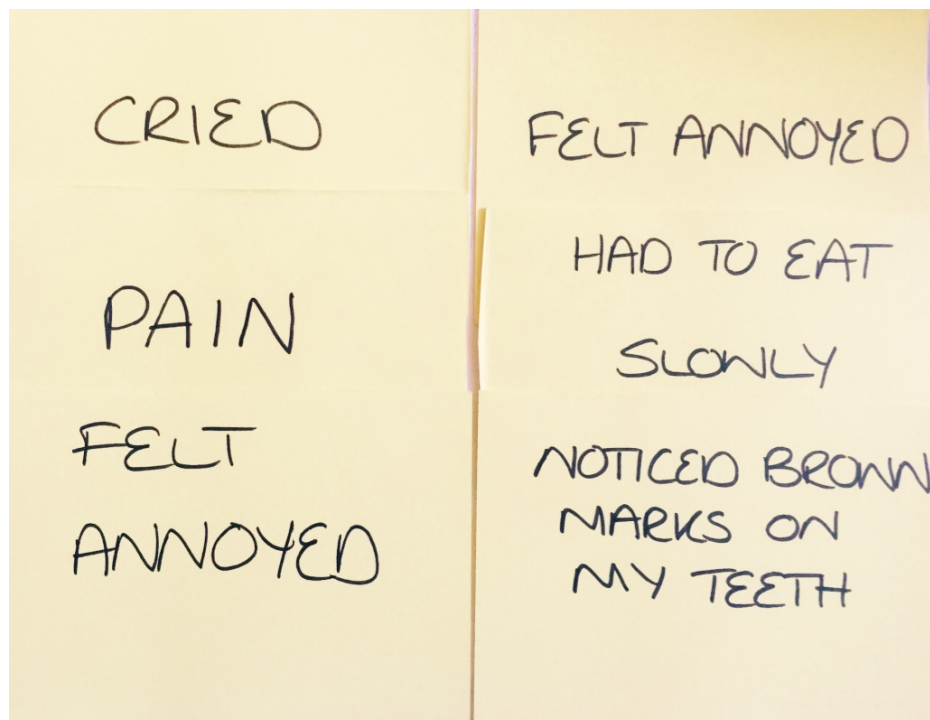 CRIED
PAIN
FELT
ANNOYED
FELT ANNOYED
HAD TO EAT
SLOWLY
NOTICED BROWN
MARKS ON
MY TEETH